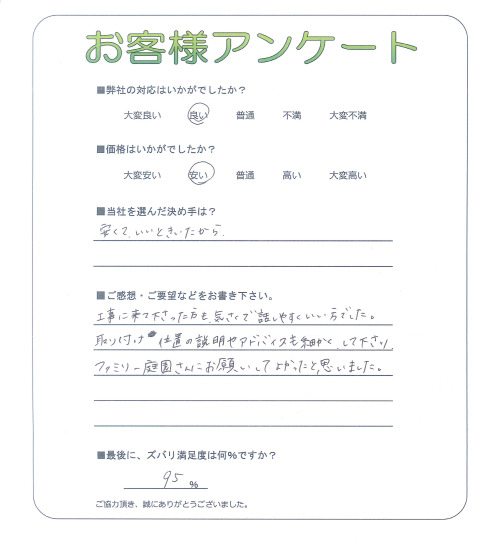 お客様アンケート
■弊社の対応はいかがでしたか？
大変良い 良い 普通 不満 大変不満
■価格はいかがでしたか？
大変安い 安い 普通 高い 大変高い
■当社を選んだ決め手は？
安くて、いいときいたから。
■ご感想・ご要望などをお書き下さい。
工事に来て下さった方も、気さくで話しやすくいい方でした。
取り付け 位置の説明やアドバイスも細かく、して下さり
ファミリー庭園さんにお願いしてよかったと、思いました。
■最後に、ズバリ満足度は何%ですか？
95 %
ご協力頂き、誠にありがとうございました。